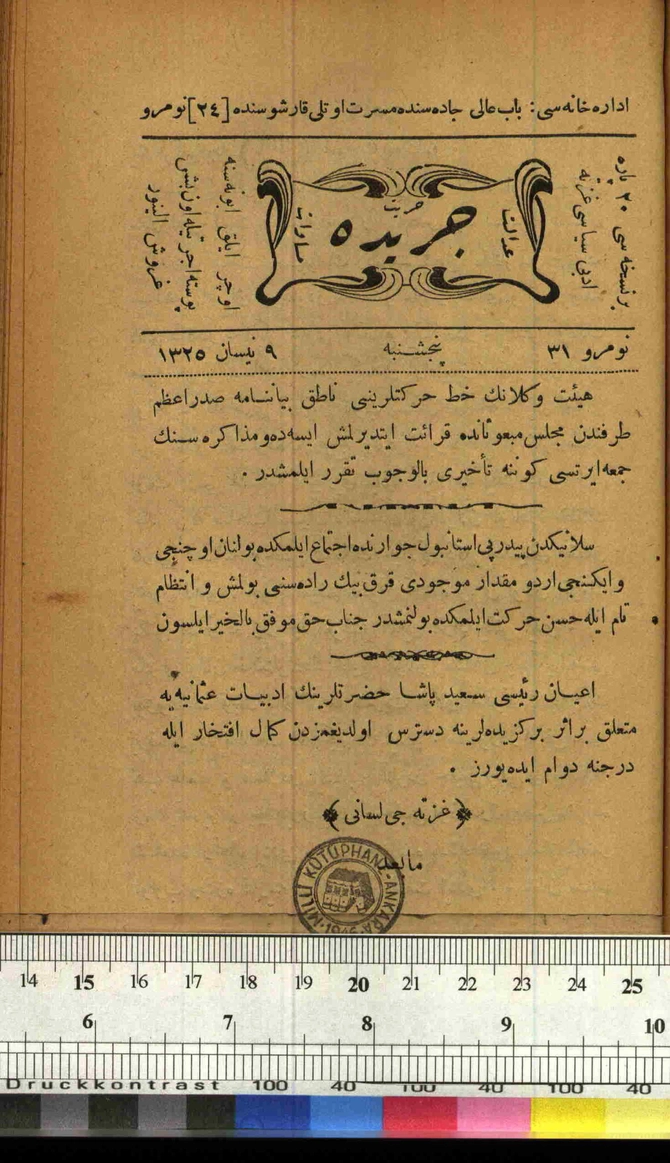 اداره خانه‌سی: باب عالی جاده‌سنده مسرت اوتلی قارشوسنده [٢٤] نومرو
برنسخه سی ٣٠ پاره
ادبی سیاسی غزته
عدالت
حریت
جریده
مساوات
اوچر ایلق ابونه‌سنه
پوسته اجرتیله اون بش
غروش آلینور
نومرو ٣١
پنجشنبه
٩ نیسان ١٣٢٥
هیئت وکلانك خط حرکتلرینی ناطق بیاننامه صدراعظم
طرفندن مجلس مبعوثانده قرائت ایتدیرلمش ایسه‌ده مذاکره سنك
جمعه ایرتسی کوننه تأخیری بالوجوب تقرر ایلمشدر .
سلانیکدن پیدرپی استانبول جوارنده اجتماع ایلمکده بولنان اوچنجی
و ایکنجی اردو مقدار موجودی قرق بیك راده‌سنی بولمش و انتظام
تام ایله حسن حرکت ایلمکده بولنمشدر جناب حق موفق بالخیر ایلسون
اعیان رئیسی سعید پاشا حضرتلرینك ادبیات عثمانیه‌یه
متعلق براثر برکزیده‌لرینه دسترس اولدیغمزدن کمال افتخار ایله
درجنه دوام ایده‌یورز .
﴿ غزته جی لسانی ﴾
مابعد
MİLLİ KÜTÜPHANE-ANKARA
1946
14 15 16 17 18 19 20 21 22 23 24 25
6 7 8 9 10
Druckkontrast 100 40 100 40 100 40